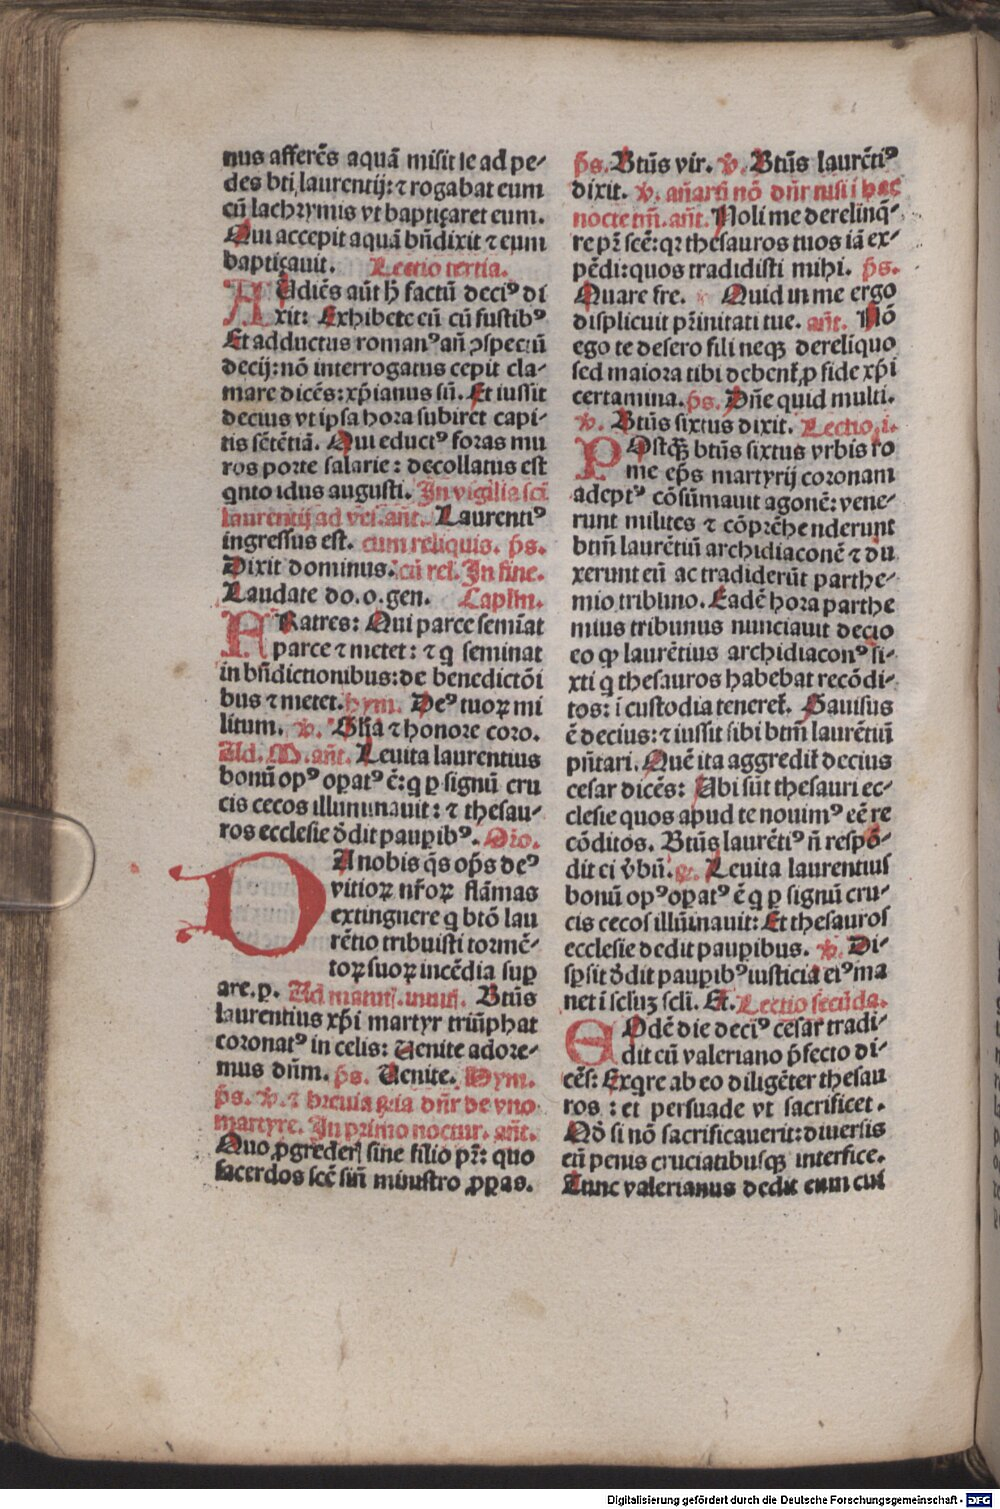 nus afferēs aquā misit se ad pe-
des bti laurentij: ⁊ rogabat eum
cū lachrymis vt baptiçaret eum.
Qui accepit aquā bn̄dixit ⁊ eum
baptiçauit. Lectio tertia.
AUdiēs aūt h̄ factū deciꝰ di
xit: Exhibete eū cū fustibꝰ
Et adductus romanꝰ an̄ ꝯspectū
decij: nō interrogatus cepit cla-
mare dicēs: xp̄ianus sū. Et iussit
decius vt ipsa hora subiret capi-
tis sētētiā. Qui eductꝰ foras mu
ros porte salarie: decollatus est
qnto idus augusti. In vigilia scī
laurentij ad ves. añt. Laurentiꝰ
ingressus est. cum reliquis. p̄s.
Dixit dominus. cū rel. In fine.
Laudate do. o. gen. Caplm̄.
FRatres: Qui parce semīat
parce ⁊ metet: ⁊ q seminat
in bn̄dictionibus: de benedictōi
bus ⁊ metet. hym. Deꝰ tuoꝝ mi
litum. v̄. Glīa ⁊ honore coro.
Ad. M. añt. Leuita laurentius
bonū opꝰ opatꝰ ē: q p signū cru
cis cecos illuminauit: ⁊ thesau-
ros ecclesie ddit paupibꝰ. Oro.
DA nobis q̄s op̄s deꝰ
vitioꝝ nr̄oꝝ flāmas
extinguere q btō lau
rētio tribuisti tormē-
toꝝ suoꝝ incēdia sup
are. p. Ad matuṫ. inuiṫ. Btūs
laurentius xp̄i martyr triūphat
coronatꝰ in celis: Uenite adore-
mus dn̄m. p̄s. Uenite. Hym.
p̄s. v̄. ⁊ breuia oīa dn̄r de vno
martyre. In primo noctur. añt.
Quo ꝓgrederꝭ sine filio pr̄: quo
sacerdos scē sin̄ ministro ꝓpas.
p̄s. Btūs vir. v̄. Btūs laurētiꝰ
dixit. v̄. añarū nō dn̄r nisi ī hac
nocte tm̄. añt. Noli me derelinq̄-
re pr̄ scē: qꝛ thesauros tuos iā ex-
pēdi: quos tradidisti mihi. p̄s.
Quare fre. Quid in me ergo
displicuit pr̄initati tue. añt. Nō
ego te desero fili neqꝫ dereliquo
sed maiora tibi debent̄ ꝓ fide xp̄i
certamina. p̄s. Dn̄e quid multi.
v̄. Btūs sixtus dixit. Lectio. i.
POstq̄ꝫ btūs sixtus vrbis ro
me ep̄s martyrij coronam
adeptꝰ cōsūmauit agonē: vene-
runt milites ⁊ cōprēhenderunt
btm̄ laurētiū archidiaconē ⁊ du
xerunt eū ac tradiderūt parthe-
mio tribuno. Eadē hora parthe
mius tribunus nunciauit decio
eo ꝙ laurētius archidiaconꝰ si-
xti q thesauros habebat recōdi-
tos: ī custodia teneret̄. Gauisus
ē decius: ⁊ iussit sibi btm̄ laurētiū
pn̄tari. Quē ita aggredit̄ decius
cesar dicēs: Ubi sūt thesauri ec-
clesie quos apud te nouimꝰ eē re
cōditos. Btūs laurētiꝰ n̄ respō-
dit ei v̄bū. ꝶ. Leuita laurentius
bonū opꝰ opatꝰ ē q p signū cru-
cis cecos illūinauit: Et thesauros
ecclesie dedit paupibus. v̄. Di-
spsit ddit paupibꝰ iusticia eiꝰ ma
net ī sclm̄ꝫ scli. Et. Lectio secūda.
EOdē die deciꝰ cesar tradi-
dit eū valeriano p̄fecto di-
cēs: Exqre ab eo diligēter thesau
ros: et persuade vt sacrificet.
Qd̄ si nō sacrificauerit: diuersis
eū penis cruciatibusqꝫ interfice.
Tunc valerianus dedit eum cui
Digitalisierung gefördert durch die Deutsche Forschungsgemeinschaft - DFG